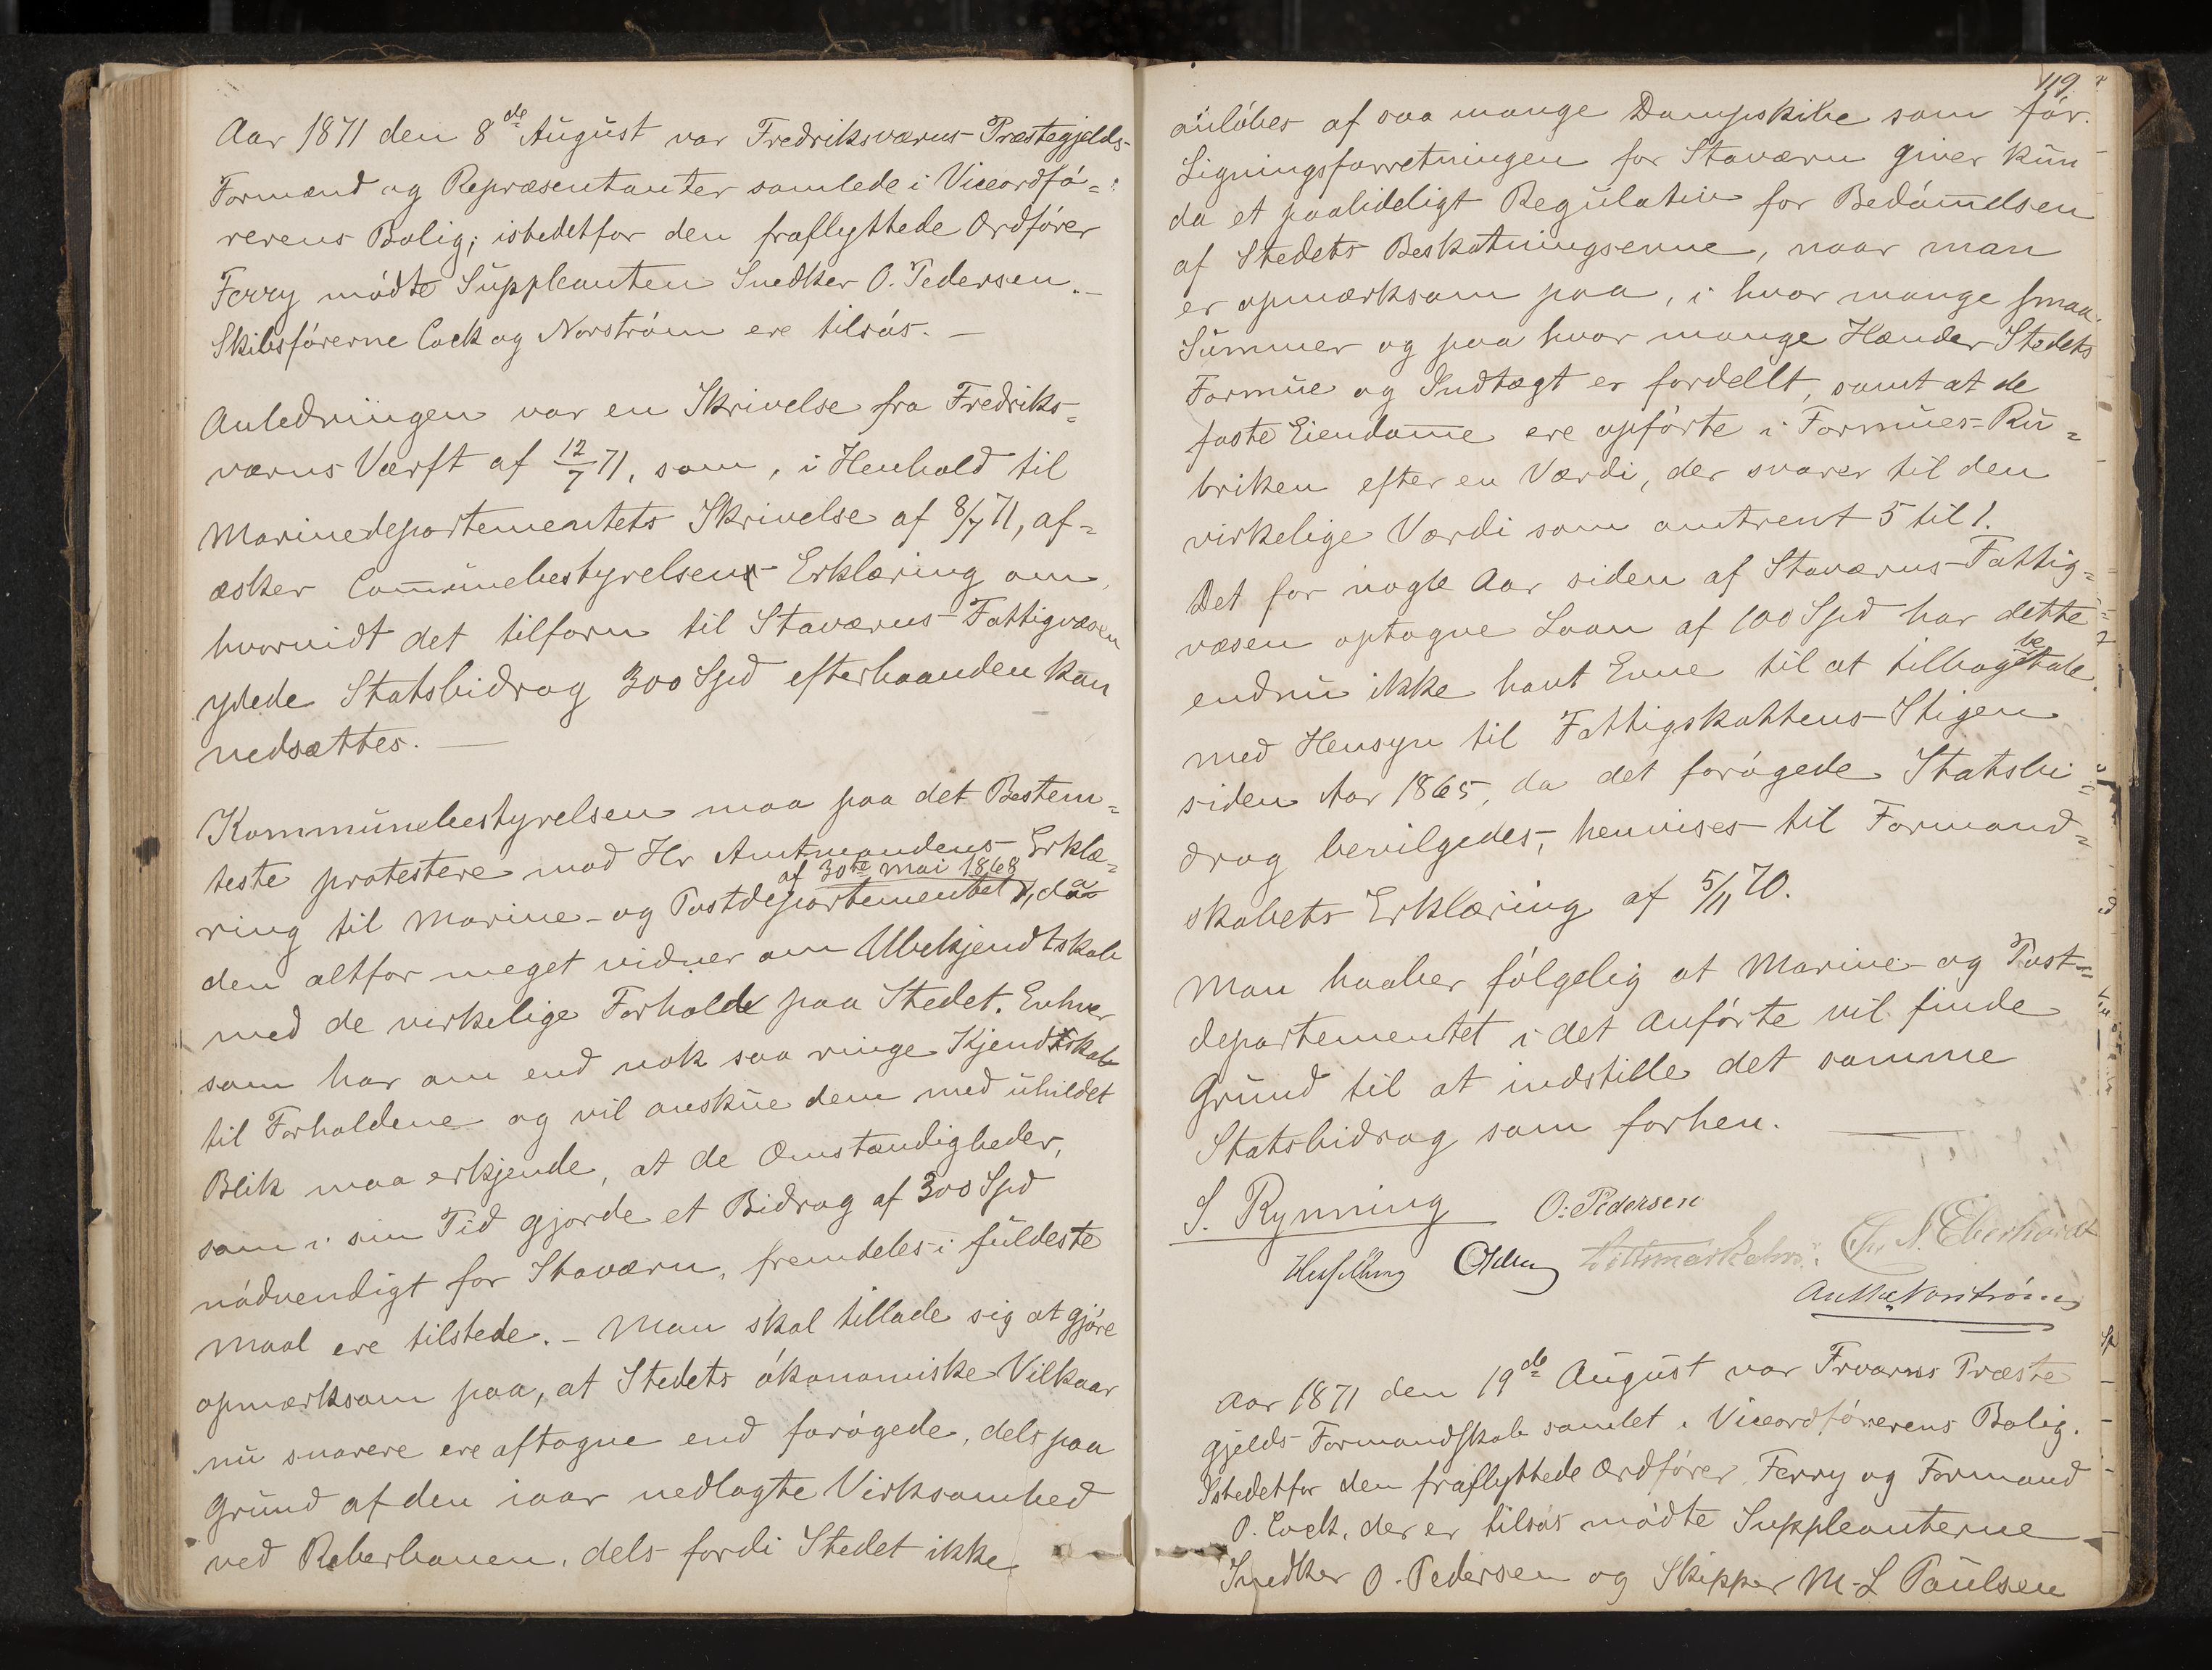 Aar 1871 den 8de August var Fredriksværns Præstegjelds-
Formænd og Repræsentanter samlede i Viceordfø=
rerens Bolig; istedetfor den fraflyttede Ordfører
Ferry mødte Suppleanten Snedker O. Pedersen. –
Skibsførerne Cock og Norstrøm ere tilsøs. –
Anledningen var en Skrivelse fra Fredriks=
værns Værft af 12/7 71, som, i Henhold til
Marinedepartementets Skrivelse af 8/7 71, af=
æsker Com̅unebestyrelsens Erklæring om
hvorvidt det tilforn til Staværns Fattigvæsen
ydede Statsbidrag 300 Spd efterhaanden kan
nedsættes. —
Kommunebestyrelsen maa paa det Bestem=
teste protestere mod Hr Amtmandens Erklæ=
af 30te Mai 1868
ring til Marine- og Postdepartementet, da
den altfor meget vidner om Ubekjendtskab
med de virkelige Forholde paa Stedet. Enhver
som har om end nok saa ringe Kjendskab
til Forholdene og vil anskue dem med uhildet
Blik maa erkjende, at de Omstændigheder,
som i sin Tid gjorde et Bidrag af 300 Spd
nødvendigt for Staværn, fremdeles i fuldeste
Maal ere tilstede. – Man skal tillade sig at gjøre
opmærksom paa, at Stedets økonomiske Vilkaar
nu snarere ere aftagne end forøgede, dels paa
Grund af den iaar nedlagte Virksomhed
ved Reberbanen, dels fordi Stedet ikke
119.
anløbes af saa mange Dampskibe som før.
Ligningsforretningen for Staværn giver kun
da et paalideligt Regulativ for Bedøm̅elsen
af Stedets Beskatningsevne, naar man
er opmærksom paa, i hvor mange smaa
Summer og paa hvor mange Hænder Stedets
Formue og Indtægt er fordellt, samt at de
faste Eiendom̅e ere opførte i Formues-Ru=
briken efter en Værdi, der svarer til den
virkelige Værdi som omtrent 5 til 1.
Det for nogle Aar siden af Staværns Fattig=
væsen optagne Laan af 100 Spd har dette
endnu ikke havt Evne til at tilbagebetale.
med Hensyn til Fattigskattens Stigen
siden Aar 1865, da det forøgede Statsbi=
drag bevilgedes, henvises til Formand=
skabets Erklæring af 5/11 70.
Man haaber følgelig at Marine- og Post=
departementet i det Anførte vil finde
Grund til at indstille det samme
Statsbidrag som forhen. —
S. Rynning O. Pedersen
Chr. N. Eberhardt
Norstrøm
Aar 1871 den 19de August var Frværns Præste
gjelds Formandskab samlet i Viceordførerens Bolig.
Istedetfor den fraflyttede Ordfører Ferry og Formand
O. Cock, der er tilsøs mødte Suppleanterne
Snedker O. Pedersen og Skipper M. L Paulsen